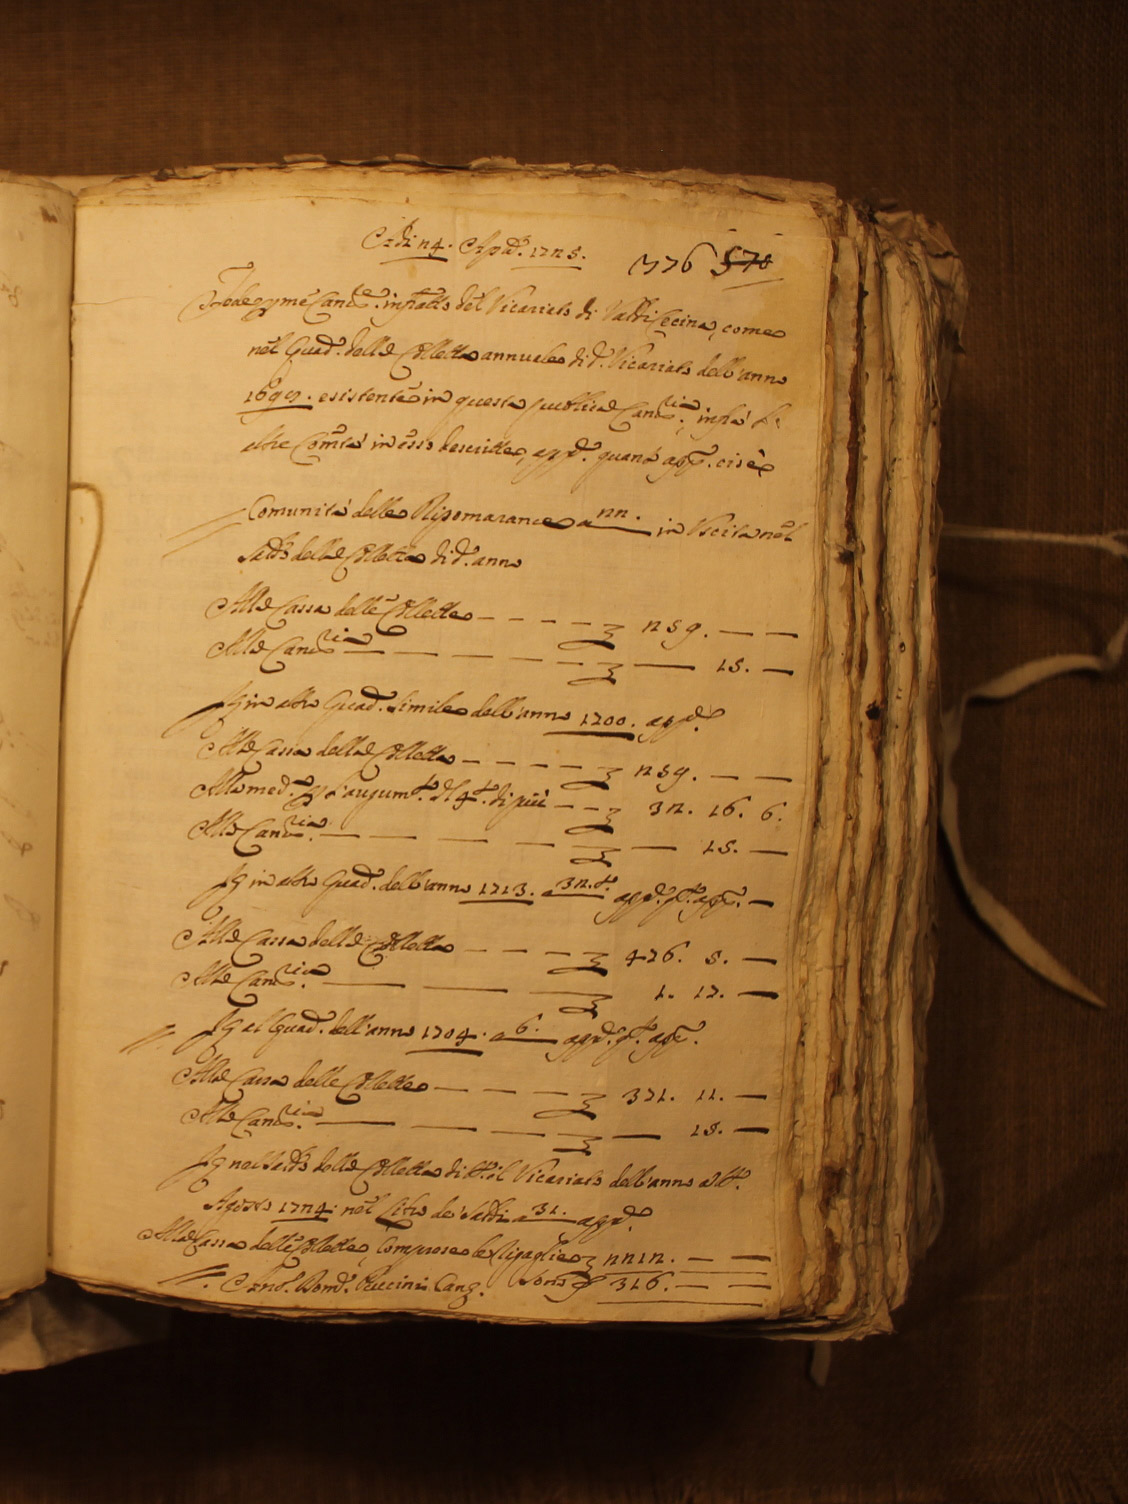 A dì 24. Apd. 1725.
376 570
Fede per me Canc.re infratto del Vicariato di Valdicecina, come
nel Quad. delle Collette annuale di d. Vicariato dell'anno
1699. esistente in questa publica Canc.ria, infra l'
altre Com.tà in esso descritte, app.e quanto app. cioè
Comunità delle Ripomarance a 22. in Uscita nel
Saldo delle Collette di d. anno
Alla Cassa delle Collette — 259. — —
Alla Canc.ria — — 15. —
In altro Quad. simile dell'anno 1700. app.e
Alla Cassa delle Collette — 259. — —
Alla med. per l'augum.to del 4.to di più — 32. 16. 6.
Alla Canc.ria — — 15. —
In altro Quad. dell'anno 1713. a 32. t. app.
Alla Cassa delle Collette — 426. 5. —
Alla Canc.ria. — 1. 17. —
al Quad. dell'anno 1704. a 6. app.
Alla Cassa delle Collette — 371. 11. —
Alla Canc.ria. — — 15. —
nel Saldo delle Collette di tt.o il Vicariato dell'anno a tt.o
Agosto 1724. nel Libro de Saldi a 31. app.e
Alla Cassa delle Collette, comprese le 2212. — —
Ant. Dom. Puccini Canc. sono 316. — —